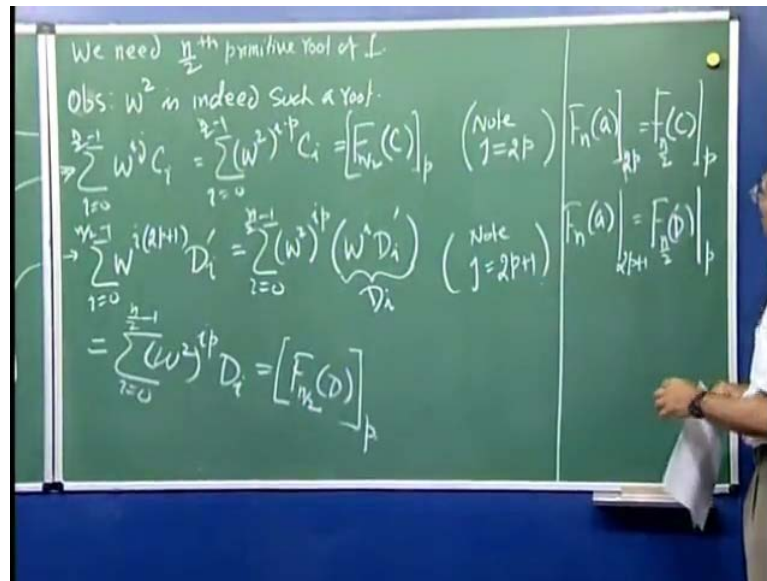 We need n/2 th primitive root of 1.
Obs: W² is indeed such a root.
→ ∑_{i=0}^{n/2-1} w^{ij} C_i = ∑_{i=0}^{n/2-1} (w²)^{ip} C_i = [F_{n/2}(C)]_p (Note j=2p)
→ ∑_{i=0}^{n/2-1} w^{i(2p+1)} D'_i = ∑_{i=0}^{n/2-1} (w²)^{ip} (w^i D'_i) (Note j=2p+1)
D_i
= ∑_{i=0}^{n/2-1} (w²)^{ip} D_i = [F_{n/2}(D)]_p
F_n(a)]_{2p} = F_{n/2}(C)]_p
F_n(a)]_{2p+1} = F_{n/2}(D)]_p